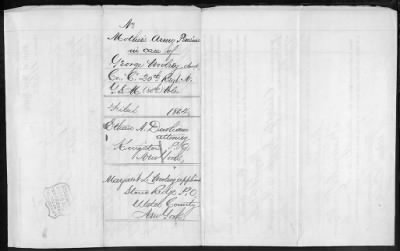 No
Mother's Army Pension
in case of
George Woolsey
Co. C. 20th Regt N.
Y. S. M.
Filed 1864
A. Durham
attorney
Kingston P.O.
New York
Margaret L. Woolsey applicant
Stone Ridge P.O.
Ulster County
New York